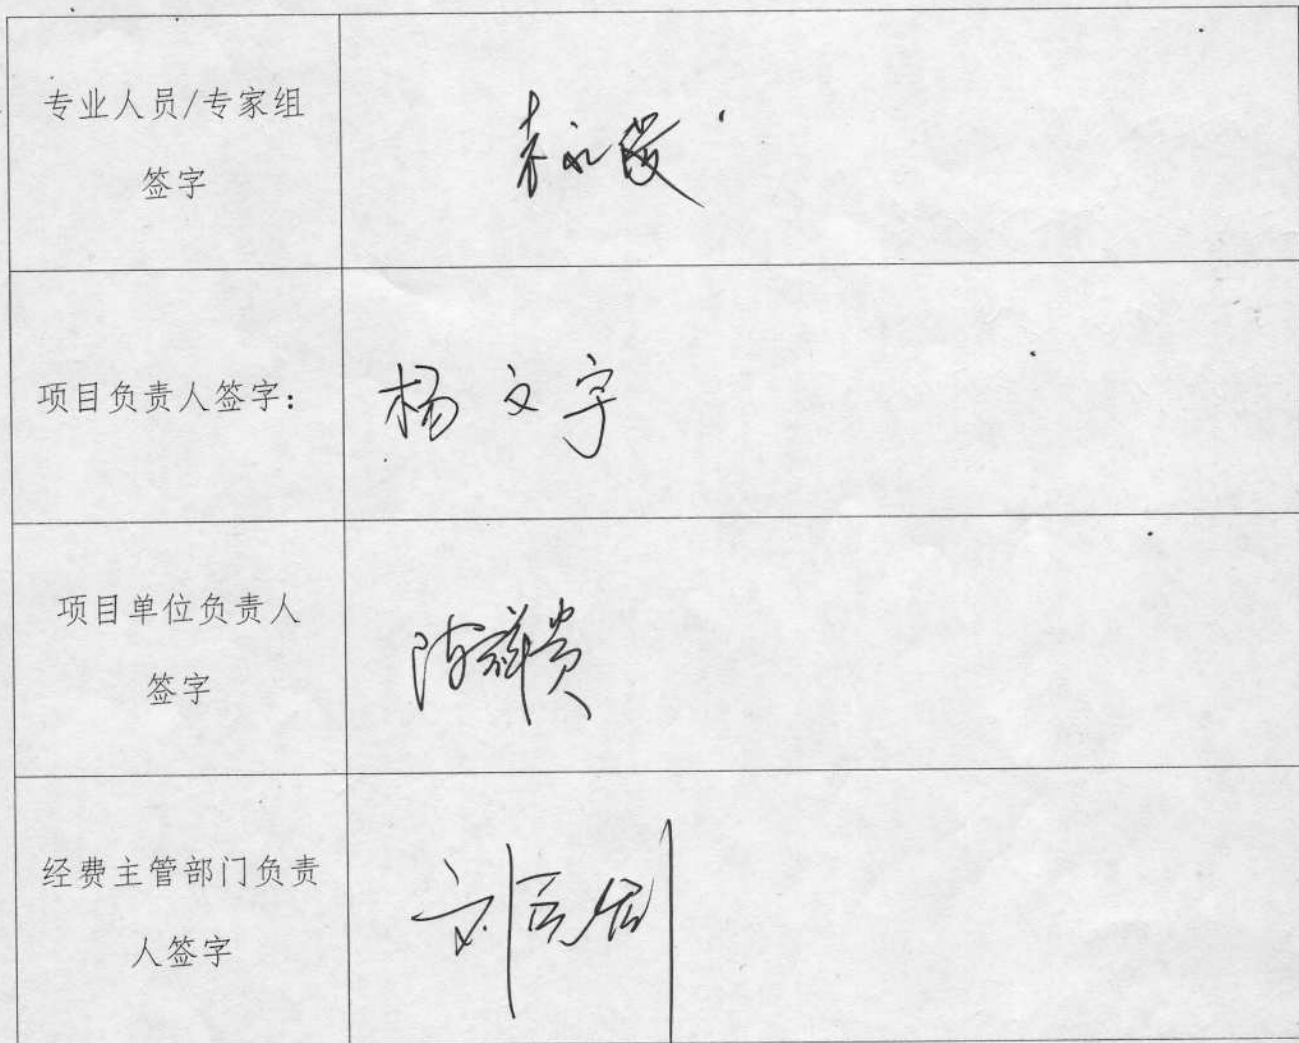 专业人员/专家组
签字
项目负责人签字:
杨文宇
项目单位负责人
签字
经费主管部门负责
人签字